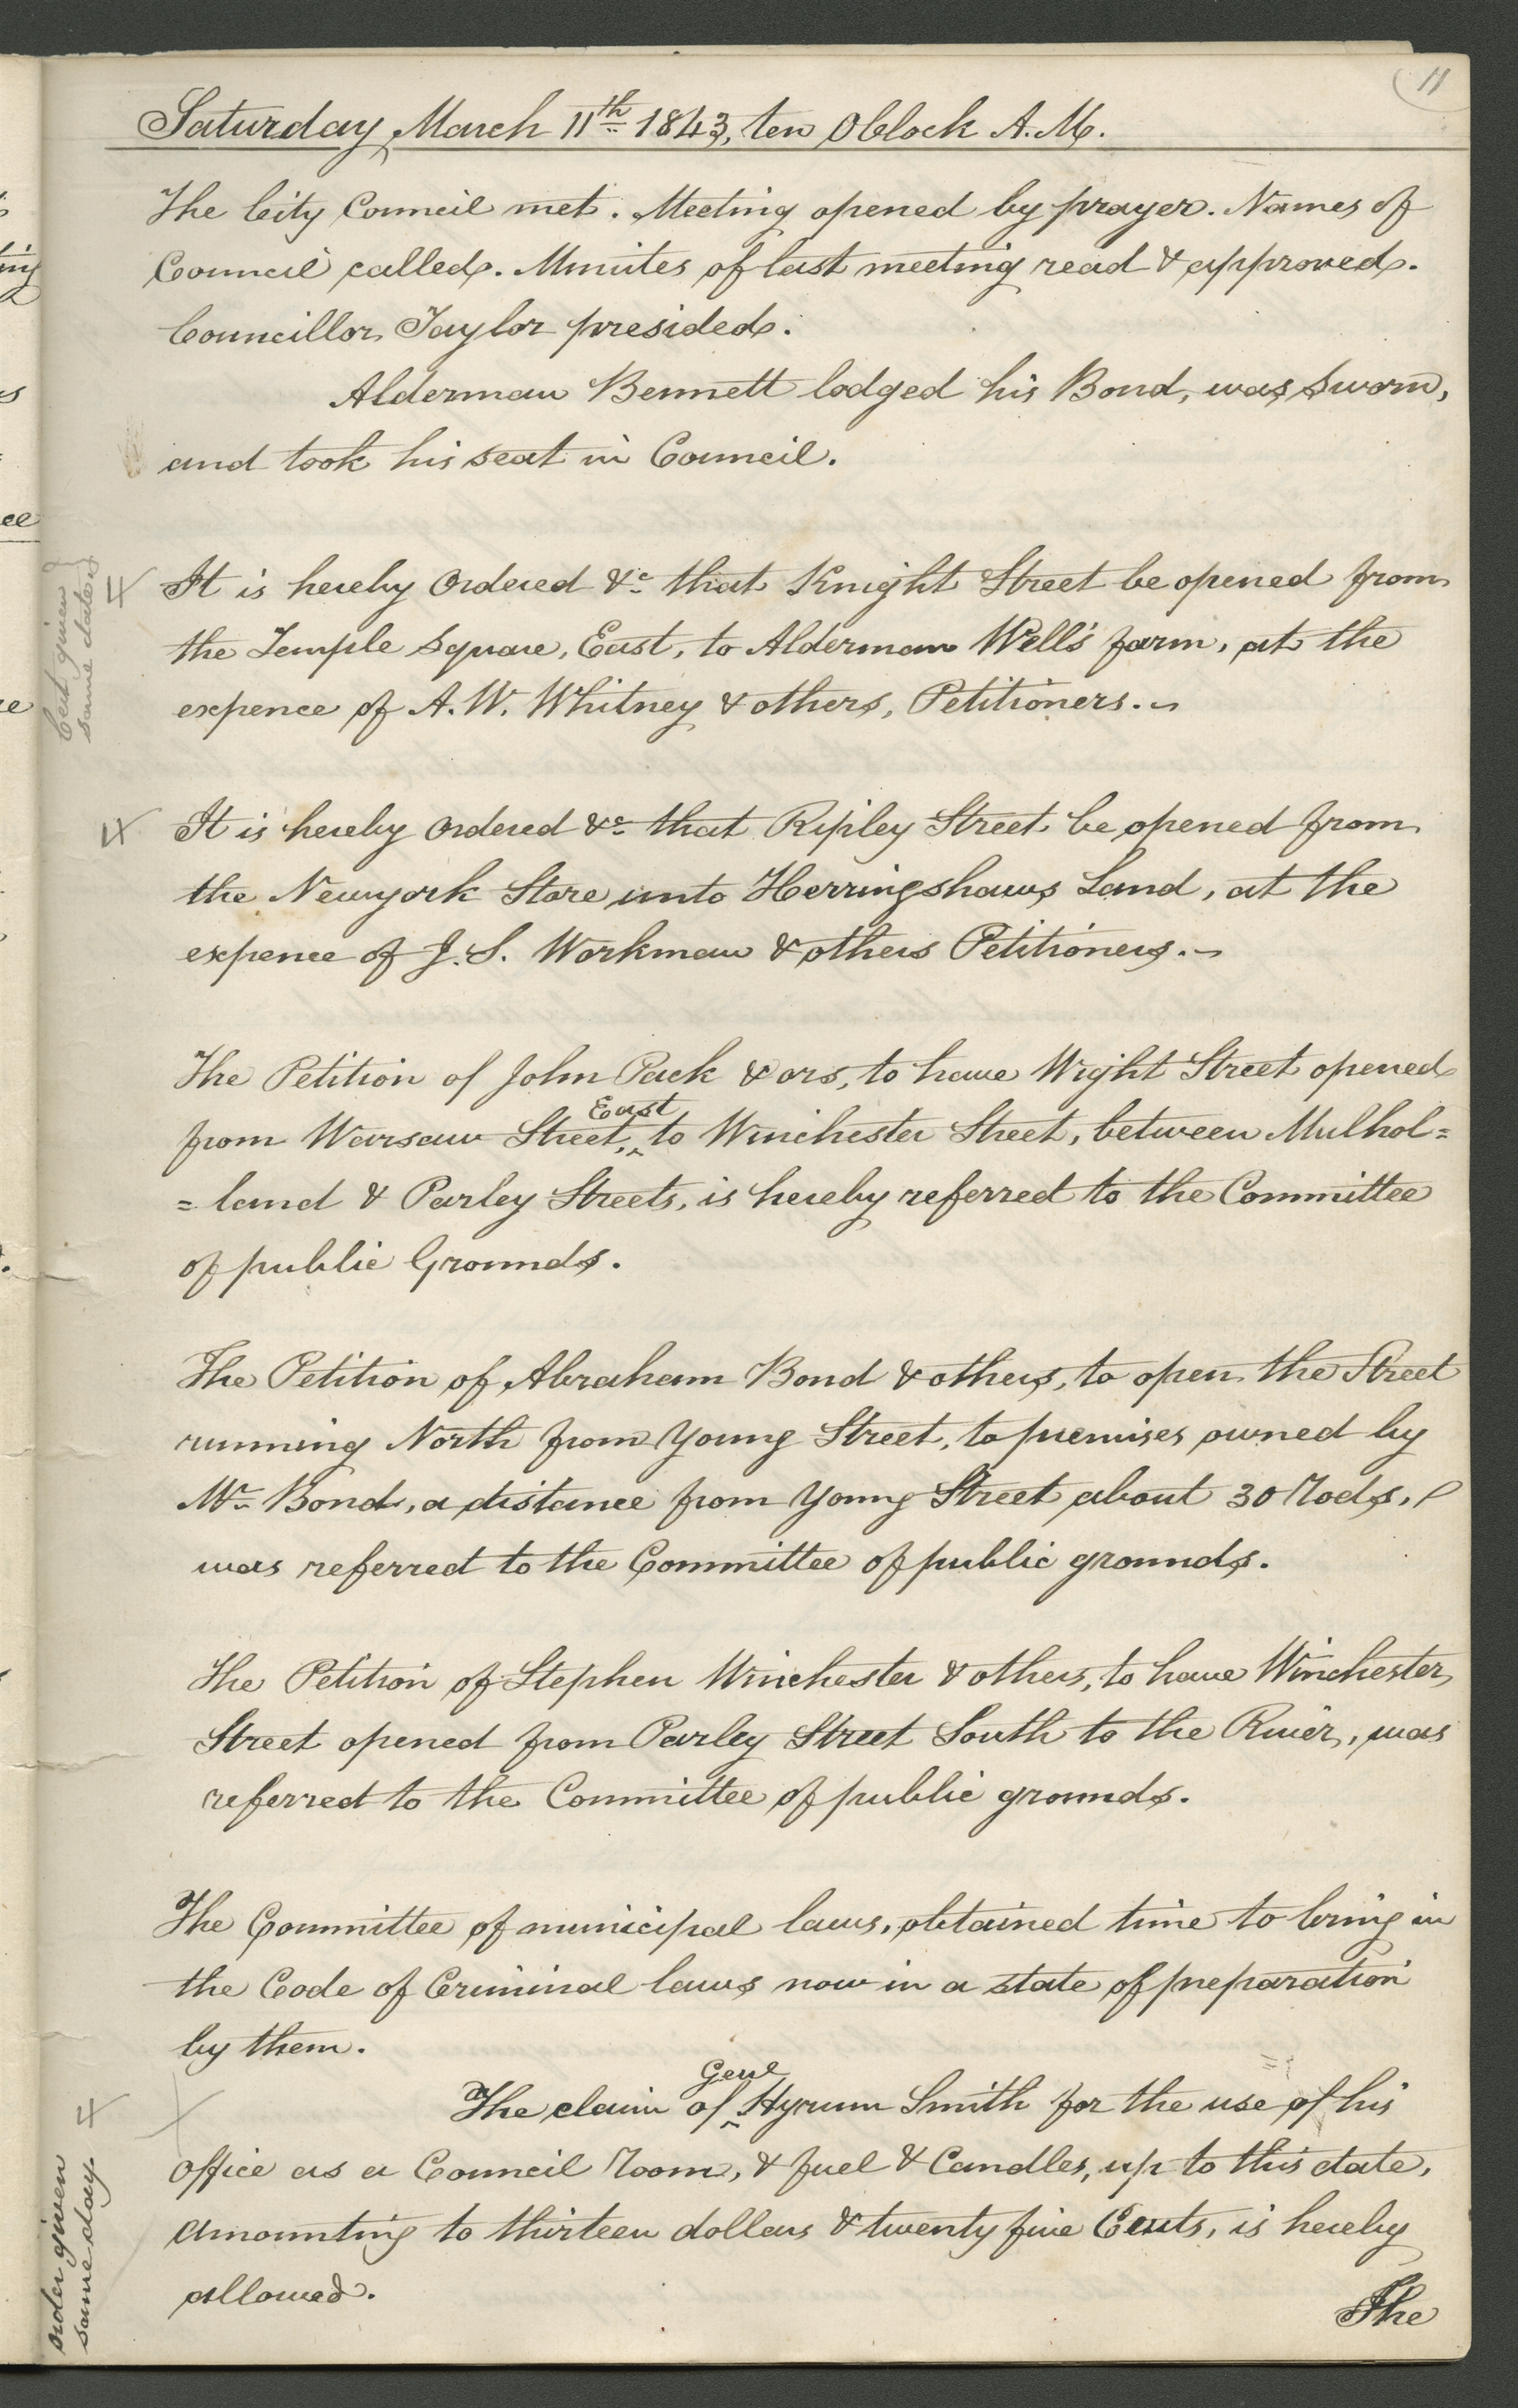 11
Saturday, March 11th 1843, ten O Clock A.M.
The City Council met. Meeting opened by prayer. Names of
Council called. Minutes of last meeting read & approved.
Councillor Taylor presided.
Alderman Bennett lodged his Bond, was sworn,
and took his seat in Council.
Cert given
same date
It is hereby Ordered &c that Knight Street be opened from
the Temple Square, East, to Alderman Wells' farm, at the
expence of A. W. Whitney & others, Petitioners.
It is hereby Ordered &c that Ripley Street be opened from
the Newyork Store unto Herringshaws Land, at the
expence of J. S. Workman & others Petitioners.
The Petition of John Pack & ors, to have Wight Street opened
from Warsaw Street, East to Winchester Street, between Mulhol=
=land & Parley Streets, is hereby referred to the Committee
of public Grounds.
The Petition of Abraham Bond & others, to open the Street
running North from Young Street, to premises owned by
Mr. Bond, a distance from Young Street about 30 Rods,
was referred to the Committee of public grounds.
The Petition of Stephen Winchester & others, to have Winchester
Street opened from Parley Street South to the River, was
referred to the Committee of public grounds.
The Committee of municipal laws, obtained time to bring in
the Code of Criminal laws now in a state of preparation
by them.
The claim of Genl Hyrum Smith for the use of his
Office as a Council Room, & fuel & Candles, up to this date,
amounting to thirteen dollars & twenty five Cents, is hereby
allowed.
order given
same day
The